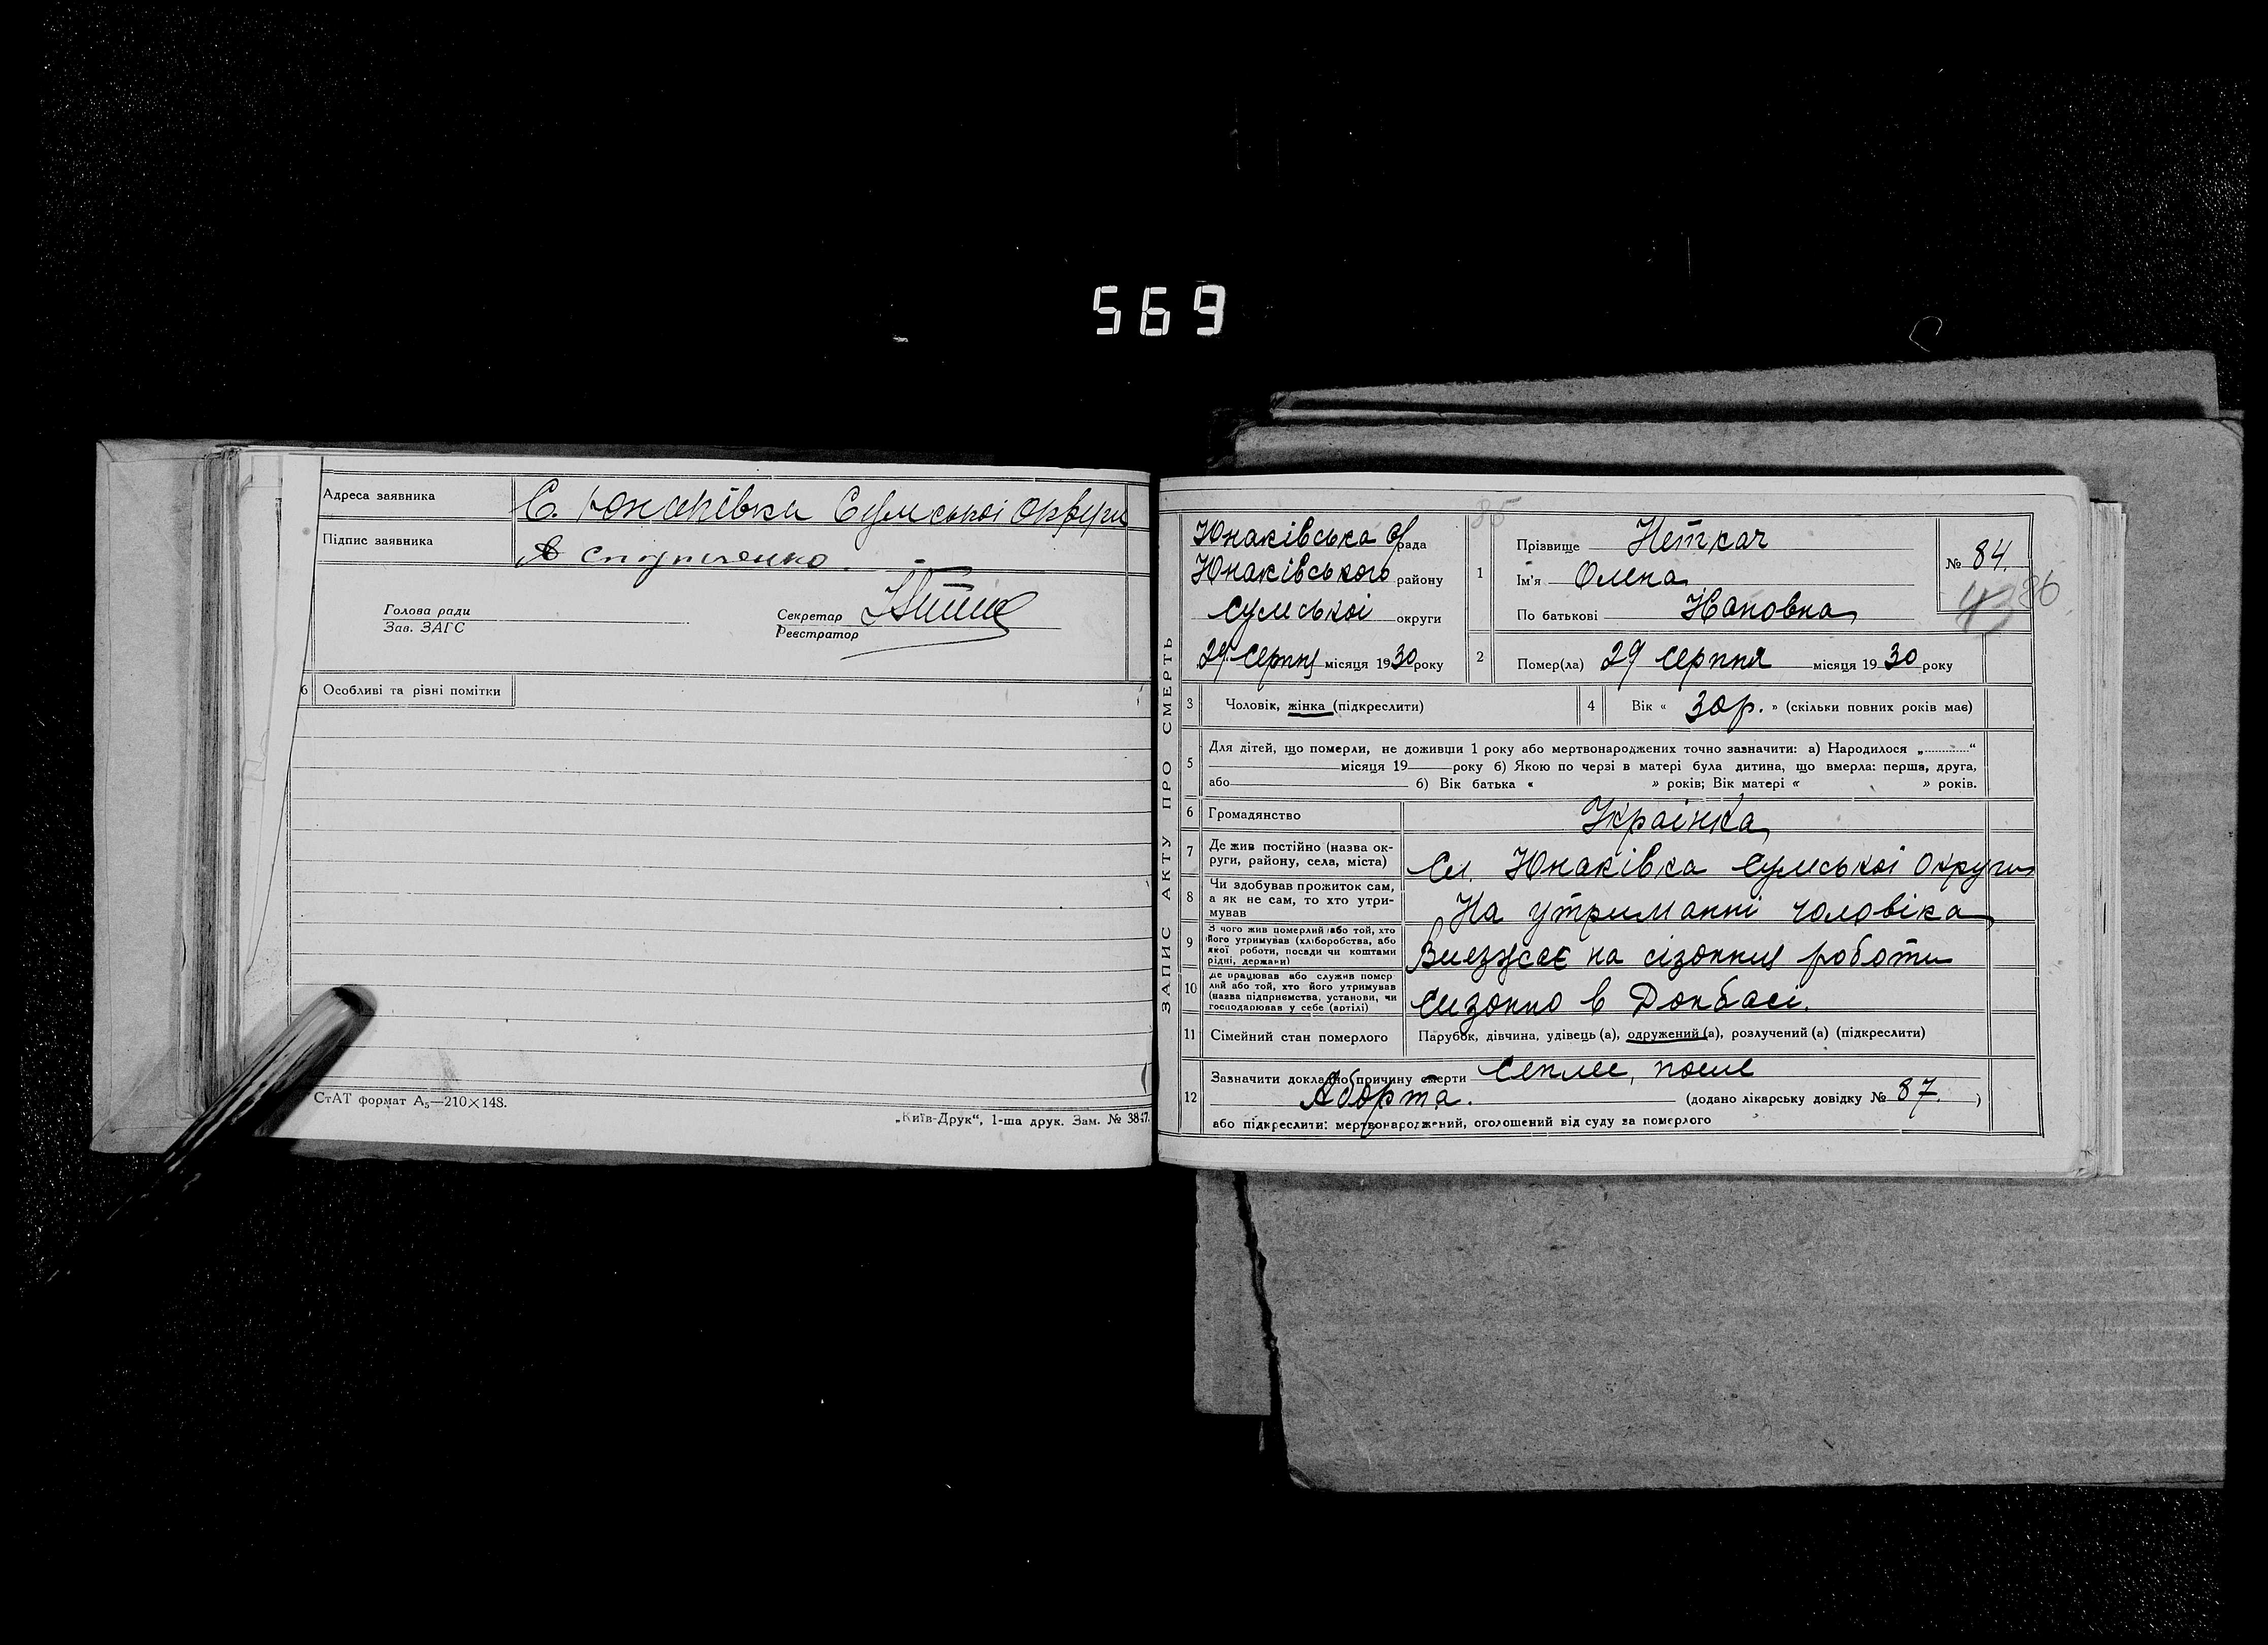 569
Адреса заявника С. Юнаківка Сумської округи
Підпис заявника
Голова ради
Зав. ЗАГС
Секретар
Реєстратор
6 Особливі та різні помітки
СтАТ формат А₅—210×148.
„Київ-Друк“, 1-ша друк. Зам. № 3847.
ЗАПИС АКТУ ПРО СМЕРТЬ
85
Юнаківська с/рада
Юнаківського району
Сумської округи
29 Серпня місяця 1930 року
1 Прізвище Неткач
Ім'я Олена
По батькові
№ 84.
86
2 Помер(ла) 29 Серпня місяця 1930 року
3 Чоловік, жінка (підкреслити)
4 Вік « 30 р. » (скільки повних років має)
5 Для дітей, що померли, не доживши 1 року або мертвонароджених точно зазначити: а) Народилося „............“
місяця 19 року б) Якою по черзі в матері була дитина, що вмерла: перша, друга,
або б) Вік батька « » років; Вік матері « » років.
6 Громадянство Українка
7 Де жив постійно (назва округи, району, села, міста) Сл. Юнаківка Сумської округи
8 Чи здобував прожиток сам,
а як не сам, то хто утри-
мував На утриманні чоловіка
9 З чого жив померлий або той, хто
його утримував (хліборобства, або
якої роботи, посади чи коштами
рідні, держави) Виезжає на сізонния роботи
10 Де працював або служив помер
лий або той, хто його утримував
(назва підприємства, установи, чи
господарював у себе (артілі) Сизонно в Донбасі.
11 Сімейний стан померлого Парубок, дівчина, удівець (а), одружений (а), розлучений (а) (підкреслити)
12 Зазначити докладно причину смерти Сепсис, после
Аборта. (додано лікарську довідку № 87. )
або підкреслити: мертвонароджений, оголошений від суду за померлого